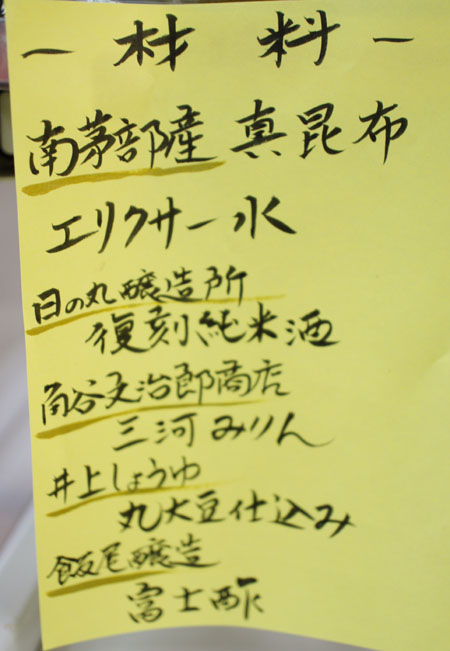 ― 材 料 ―
南茅部産 真昆布
エリクサー水
日の丸醸造所
復刻純米酒
角谷文治郎商店
三河みりん
井上しょうゆ
丸大豆仕込み
飯尾醸造
富士酢